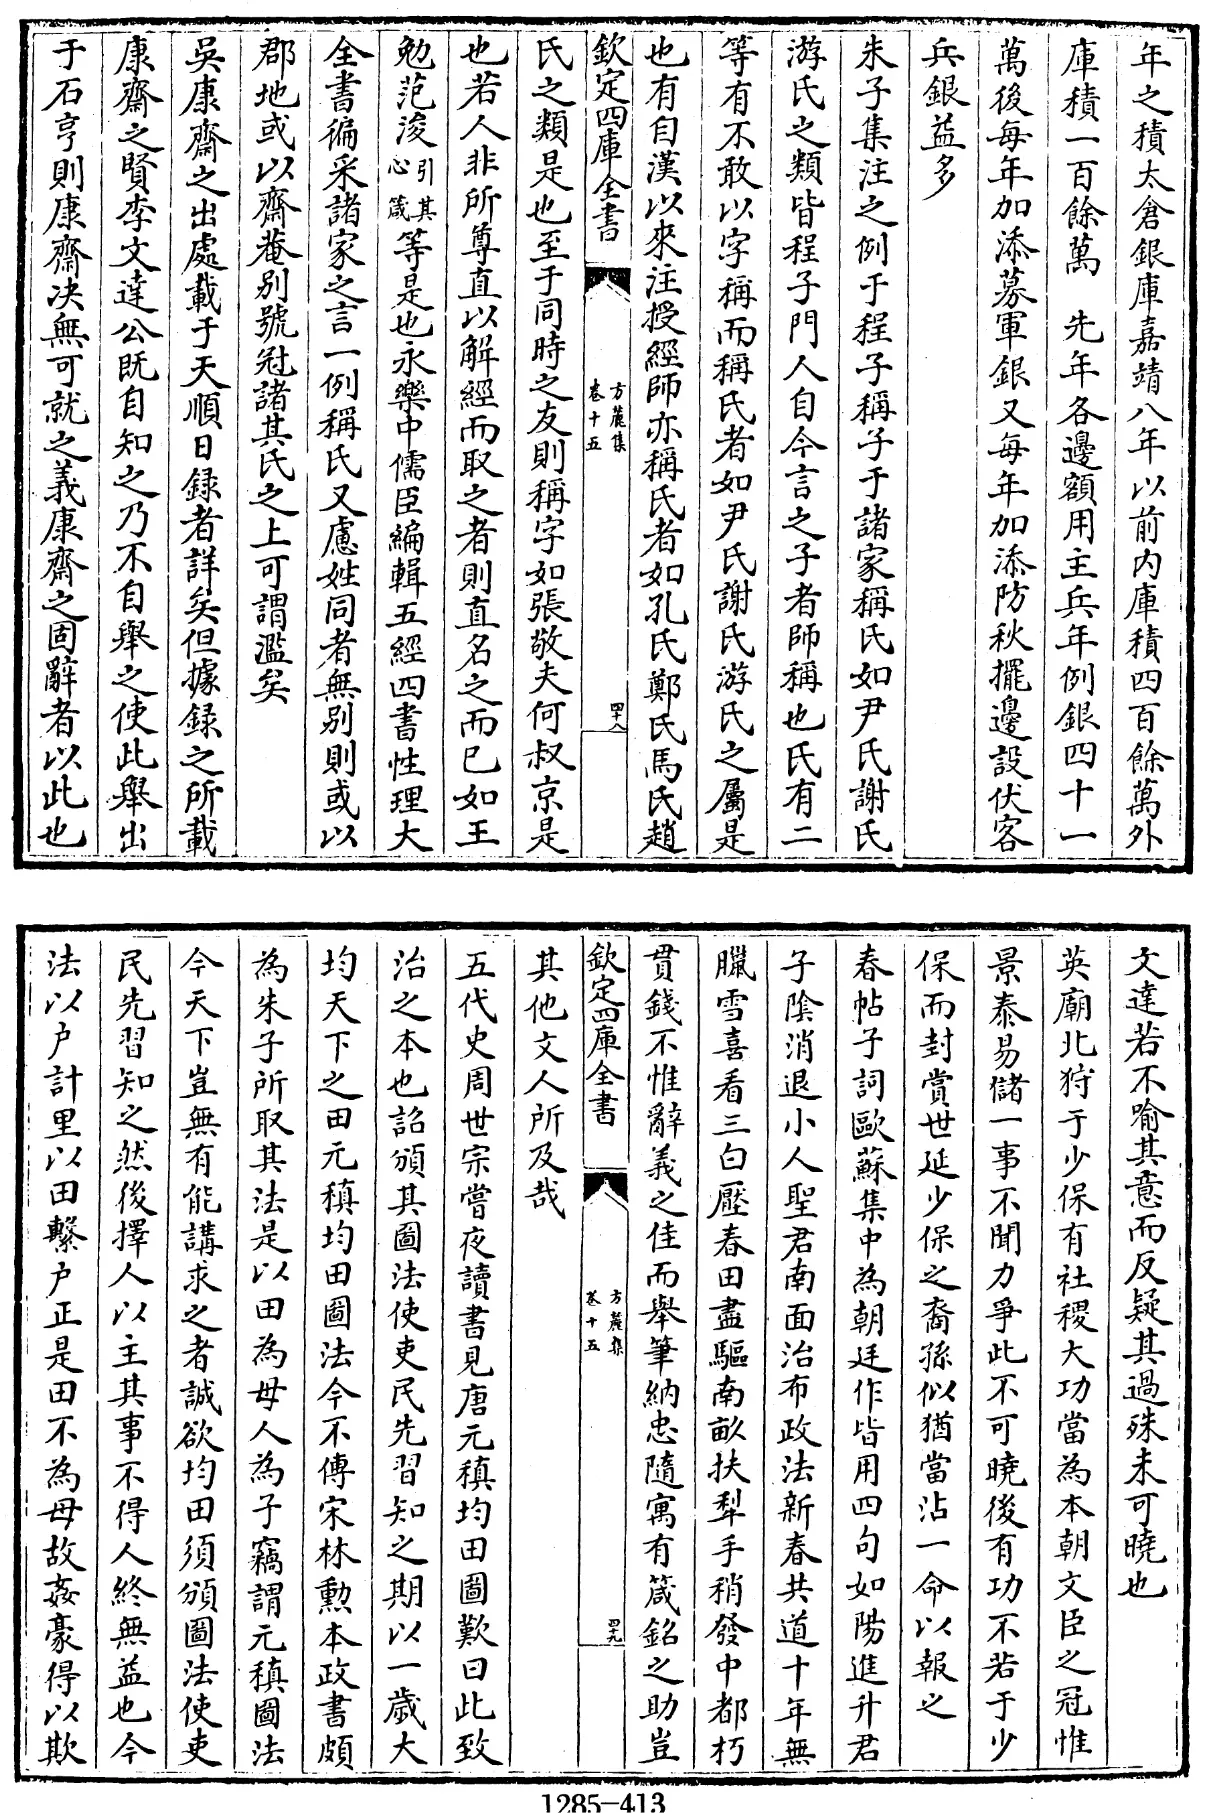 年之積太倉銀庫嘉靖八年以前内庫積四百餘萬外
庫積一百餘萬　先年各邊額用主兵年例銀四十一
萬後每年加添募軍銀又每年加添防秋擺邊設伏客
兵銀益多
朱子集注之例于程子稱子于諸家稱氏如尹氏謝氏
游氏之類皆程子門人自今言之子者師稱也氏有二
等有不敢以字稱而稱氏者如尹氏謝氏游氏之屬是
也有自漢以來注授經師亦稱氏者如孔氏鄭氏馬氏趙
欽定四庫全書
方麓集
卷十五
四十八
氏之類是也至于同時之友則稱字如張敬夫何叔京是
也若人非所尊直以解經而取之者則直名之而已如王
勉范浚引其心箴等是也永樂中儒臣編輯五經四書性理大
全書徧采諸家之言一例稱氏又慮姓同者無别則或以
郡地或以齋菴别號冠諸其氏之上可謂濫矣
吳康齋之出處載于天順日録者詳矣但據録之所載
康齋之賢李文達公既自知之乃不自舉之使此舉出
于石亨則康齋决無可就之義康齋之固辭者以此也
文達若不喻其意而反疑其過殊未可曉也
英廟北狩于少保有社稷大功當為本朝文臣之冠惟
景泰易儲一事不聞力爭此不可曉後有功不若于少
保而封賞世延少保之裔孫似猶當沾一命以報之
春帖子詞歐蘇集中為朝廷作皆用四句如陽進升君
子陰消退小人聖君南面治布政法新春共道十年無
臘雪喜看三白壓春田盡驅南畝扶犁手稍發中都朽
貫錢不惟辭義之佳而舉筆納忠隨寓有箴銘之助豈
欽定四庫全書
方麓集
卷十五
四十九
其他文人所及哉
五代史周世宗嘗夜讀書見唐元稹均田圖歎曰此致
治之本也詔頒其圖法使吏民先習知之期以一歲大
均天下之田元稹均田圖法今不傳宋林勲本政書頗
為朱子所取其法是以田為母人為子竊謂元稹圖法
今天下豈無有能講求之者誠欲均田須頒圖法使吏
民先習知之然後擇人以主其事不得人終無益也今
法以户計里以田繫户正是田不為母故姦豪得以欺
1285-413